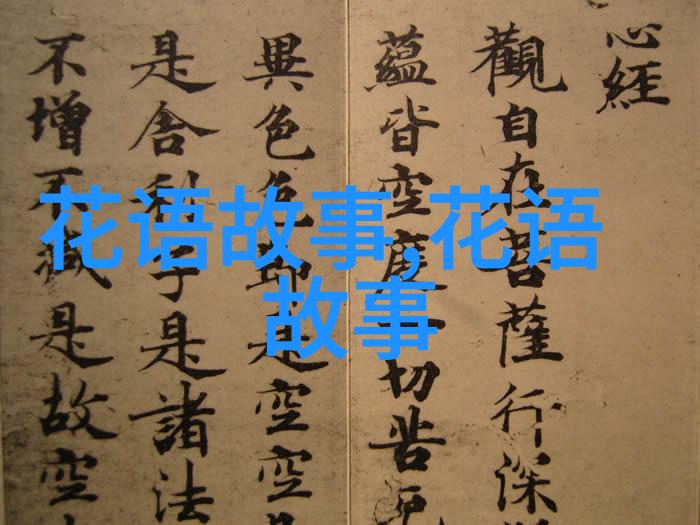 花语故事,花语
故事
心經
觀自在菩薩行深
蘊皆空度一切苦厄
異色色即是空空是
是舍利子是諸法
不增不減是故空